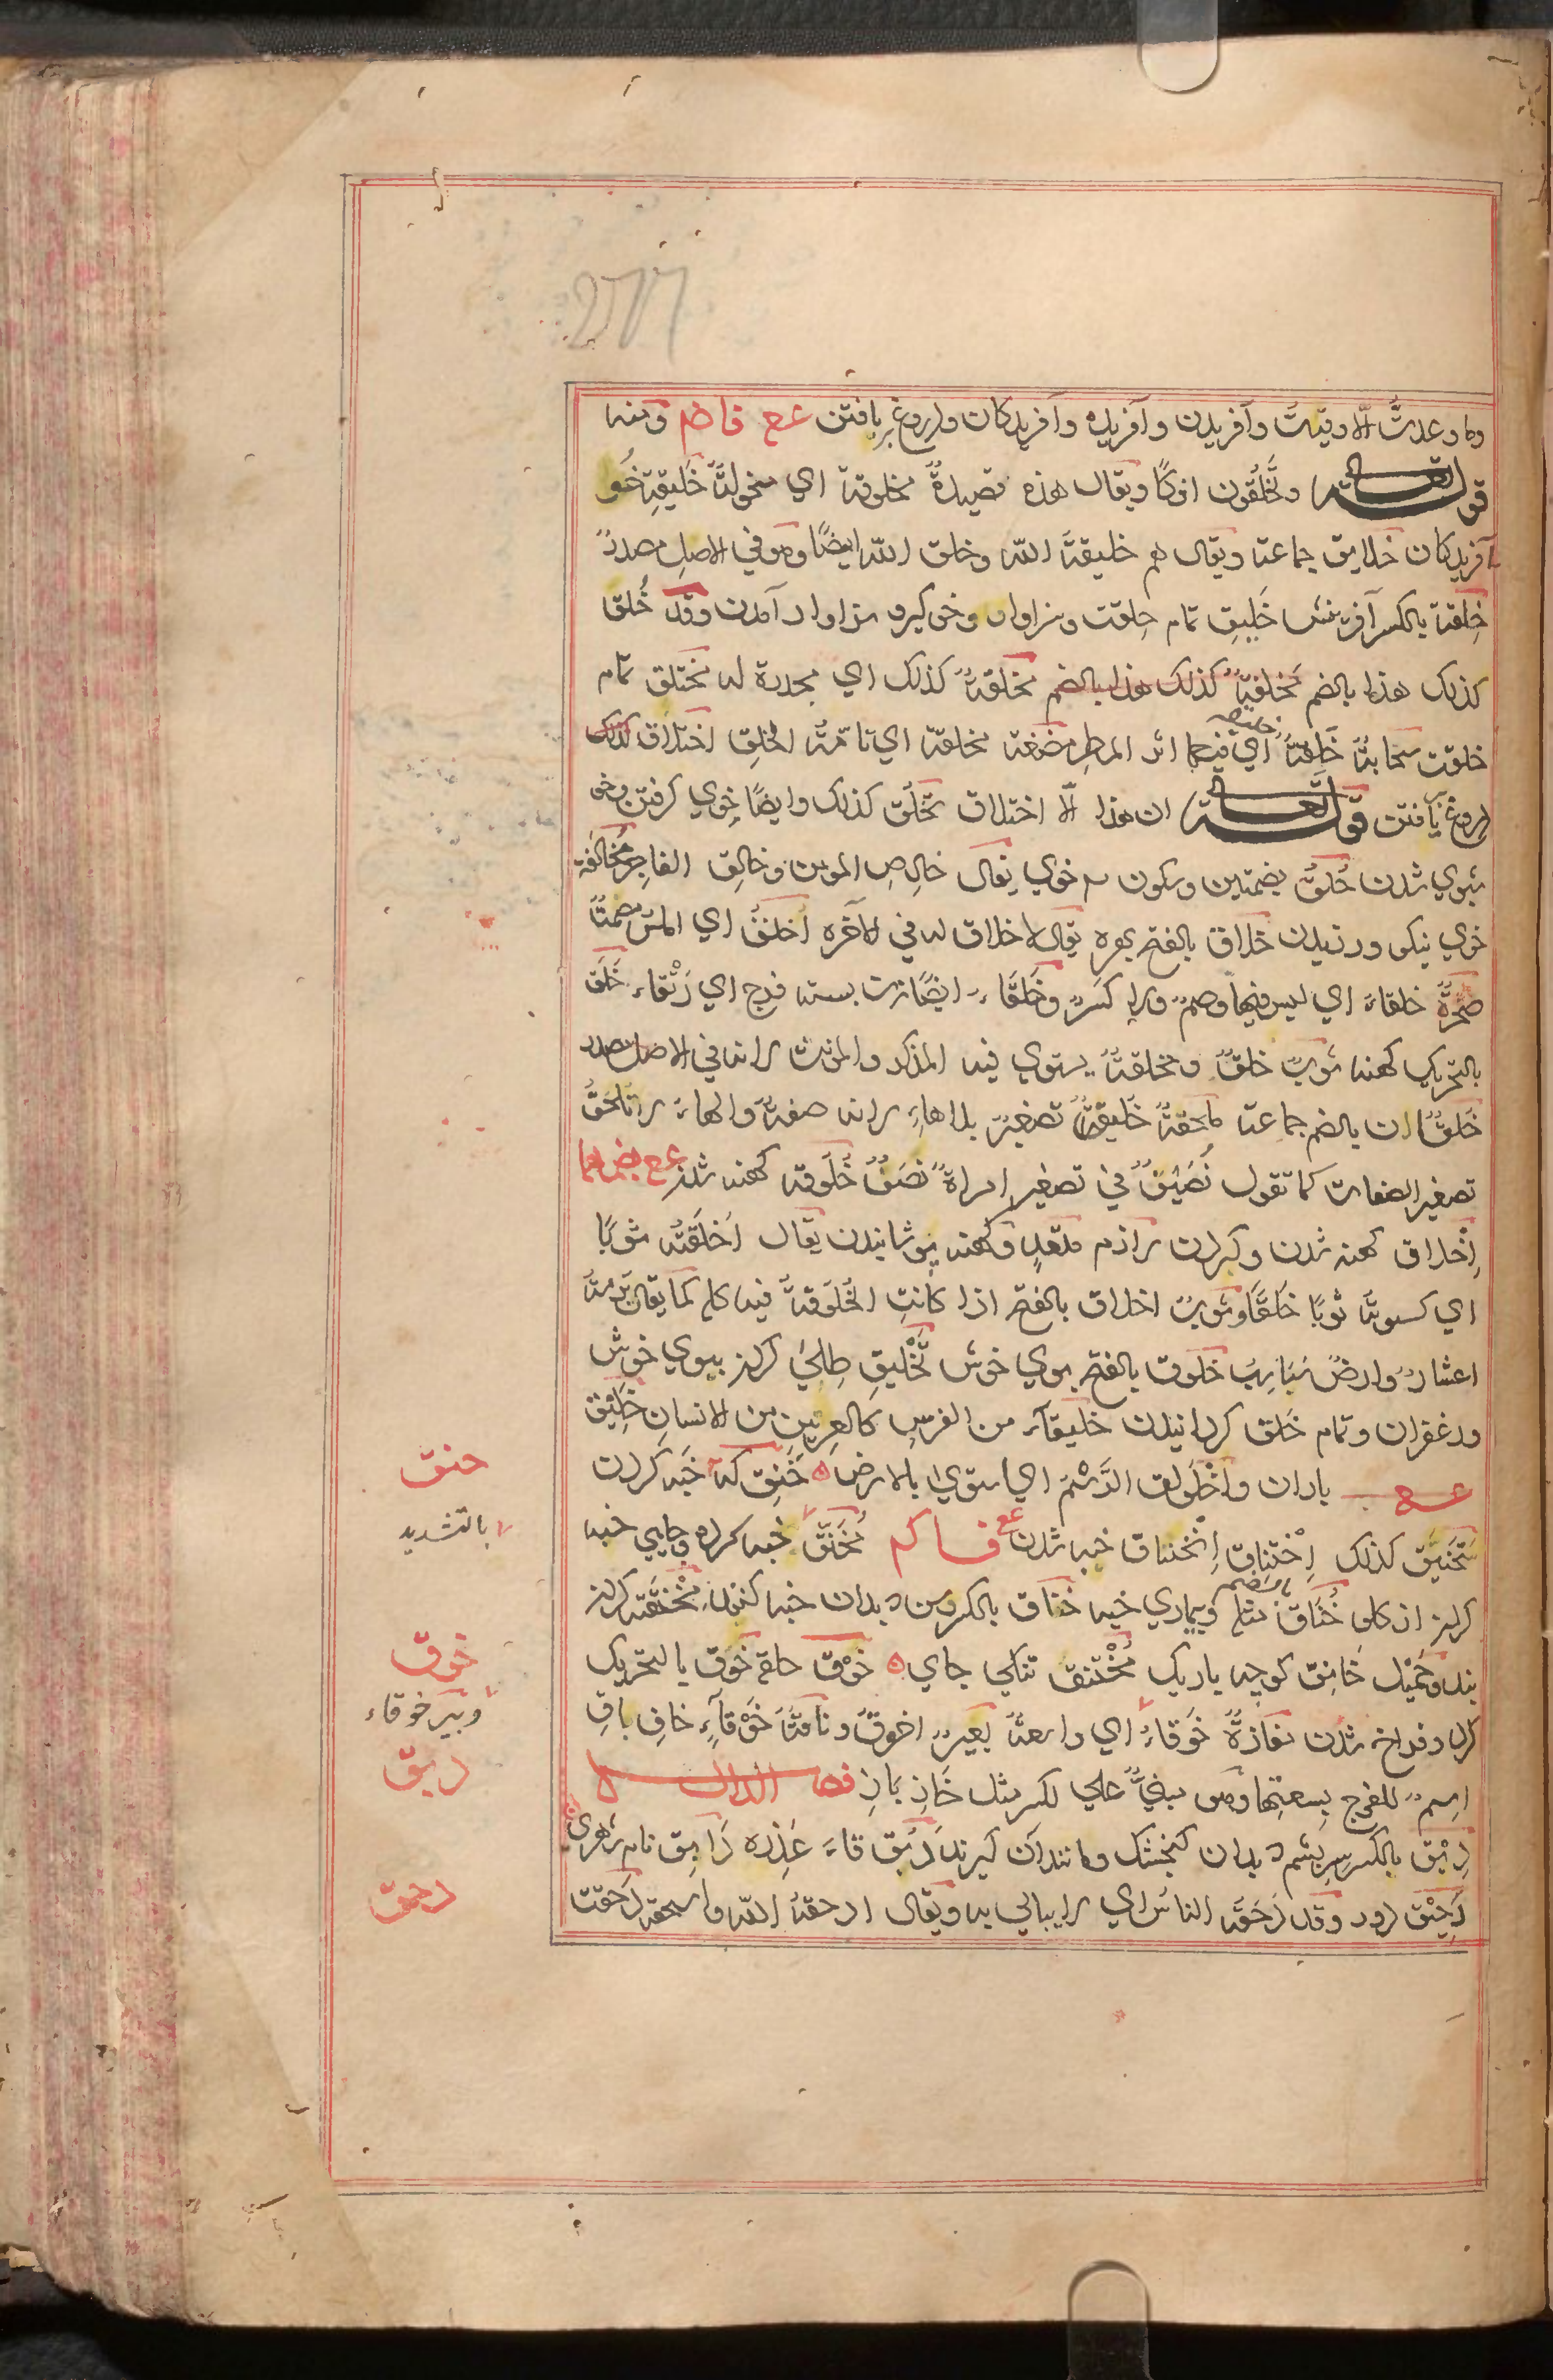 وما وعدتُ الّا وفيتُ وآفریدن وآفریده وآفریدکان ودروغ بربافتن عـع فا ضم ومنه
قوله تعالی وتَخلُقون افکًا ویقال هذه قصیدةٌ مخلوقة ای منحولةٌ خَلیقة خُو
آفریدکان خلایق جماعة ویقال هم خلیقةُ اللّه وخلق اللّه ایضًا وهو فی الاصل مصدرٌ
خِلقة بالکسر آفرینش خَلیق تمام خلقت وسزاوار وخوکیر سزاوار آمدن وقد خُلق
کذلک هذا بالضم مَخلقةٌ کذلک هذا بالضم مخلقةٌ کذلک ای مجدرة له مختلق تمام
خلقت سحابةٌ خَلِقةٌ ای فیها اثر المطر مضغة مخلقة ای تامّةُ الخلق اختلاق کذلک
دروغ بافتن قوله تعالی ان هذا الّا اختلاق تخلّق کذلک وایضًا خوی کرفتن وخو
شدن خُلقٌ بضمتین وسکون م خوی یقال خالِصِ المؤمن وخالِق الفاجر مُخالَقة
خوی نیکو ورزیدن خلاق بالفتح بهره یقال لا خلاق له فی الآخرة اَخلَقُ ای املس مصمتٌ
صخرةٌ خلقاءُ ای لیس فیها وصمٌ ولا کسرٌ وخَلقاءُ ایضًا زن بسته فرج ای رَتْقاء خَلَق
بالتحریک کهنه ثوبٌ خلقٌ ومخلقةٌ یستوی فیه المذکر والمؤنث لانه فی الاصل مصدر
خُلقان بالضم جماعة ملحقةٌ خُلیقٌ تصغیرٌ بلا هاءٍ لانه صفةٌ والهاءُ لا تلحقُ
تصغیر الصفات کما تقول نُصَیفٌ فی تصغیر امراةٌ نصَفٌ خُلوقة کهنه شدن عـع بضمهما
اِخلاق کهنه شدن وکردن لازم متعدٍ وکهنه پوشانیدن یقال اَخلَقتُه ثوبًا
ای کسوتهُ ثوبًا خَلَقًا وثوبٌ اخلاق بالفتح اذا کانتِ الخُلوقةُ فیه کله کما یقال بُرمةٌ
اعشارٌ وارضٌ سَباسِبُ خلوق بالفتح بوی خوش تَخلیق طلی کردن ببوی خوش
وزعفران وتمام خَلق کردانیدن خلیقآء من الفرس کالعِرنین من الانسان خلیق
بادان واخلولق الرَسْمُ ای استوی بالارض ه خَنِق که خَبه کردن
تَخنیق کذلک اِختناق اِنخناق خبه شدن عع فا کم مُخَنَّق خبه کرده وجای خبه
کردن از کلو خُناق بالضم مثله وبیماری خبه خناق بالکسر رسن که بدان خبه کنند مِخْنَقة کردن
بند وحَمیل خانق کوچه باریک مُخْتنق تنکی جای ه خوْق حلقه خَوَق بالتحریک
کر وفراخ شدن مفازةٌ خَوقاءُ ای واسعةٌ بعیرٌ اخوقُ وناقةٌ خَوْقآءُ خاقِ باقِ
اِسمٌ للفرج بسعتها وهو مبنیٌّ علی لکسر مثل خَازِ بَازِ فصل الدال
دِبْق بالکسر سریشم که بدان کنجشک ومانند آن کیرند دَبْوقاءُ عَذِره دَابِق نام شهری
دَحِیْق دور وقد دَحَقه الناسُ ای لا یبالی به ویقال ادحقهُ اللّه واسحقه دَحقت
خنق
بالتشدید
خوق
وبئر خوقاء
دبق
دحق